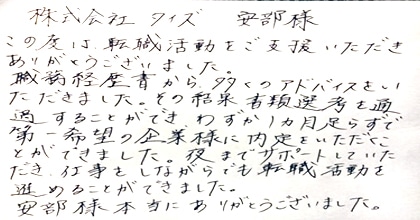 株式会社 タイズ 安部様
この度は、転職活動をご支援いただき
ありがとうございました。
職務経歴書から、多くのアドバイスをい
ただきました。その結果 書類選考を通
過することができ、わずか1カ月足らずで
第一希望の企業様に内定をいただくこ
とができました。夜までサポートしていた
だき、仕事をしながらでも転職活動を
進めることができました。
安部様本当にありがとうございました。